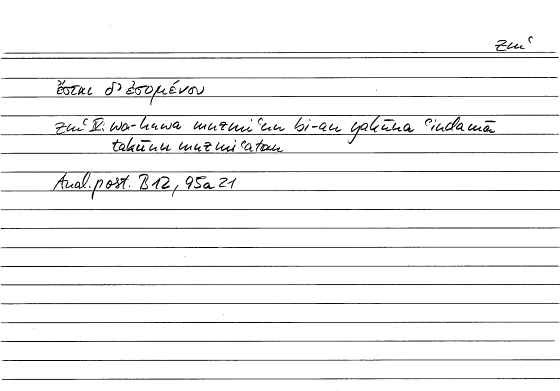 zmʿ
ἔσται δ' ἐσομένου
zmʿ IV: wa-huwa muzmiʿun bi-an yakūna ʿindamā
takūnu muzmiʿatan
Anal. post. B 12, 95a 21